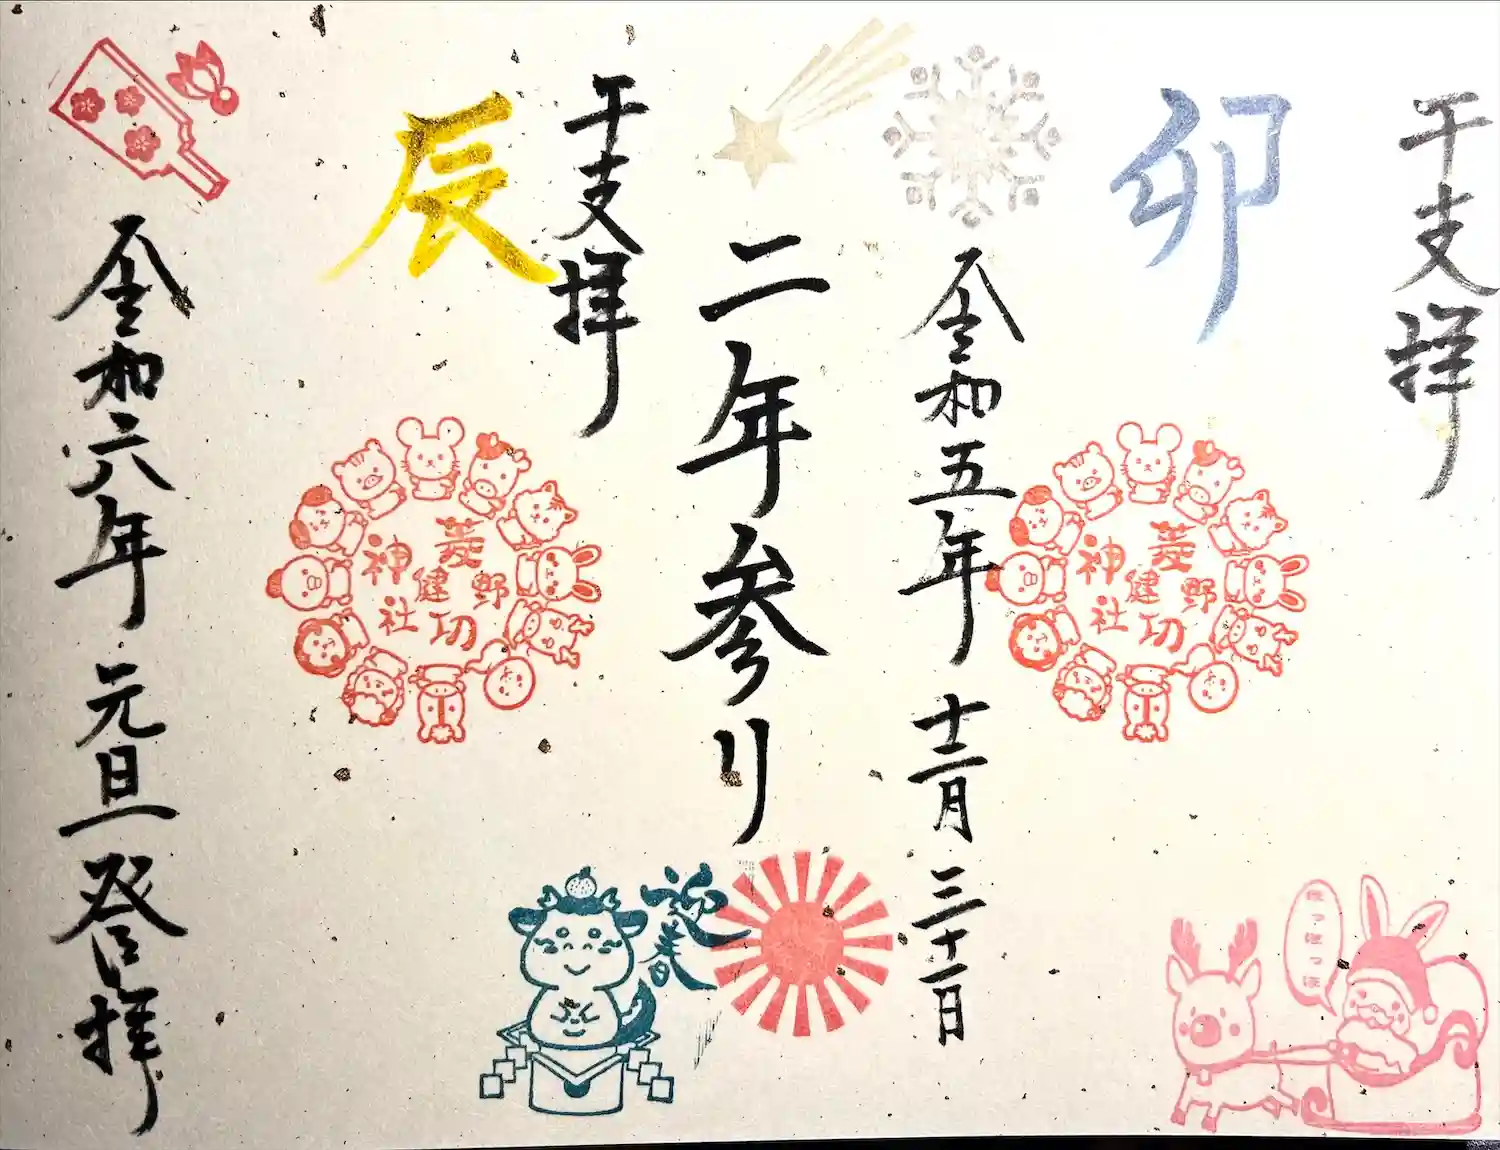 干支拝
卯
菱野
健功
神社
ほっほっほ
令和五年 十二月 三十一日
二年参り
干支拝
辰
菱野
健功
神社
迎春
令和六年 元旦 登拝